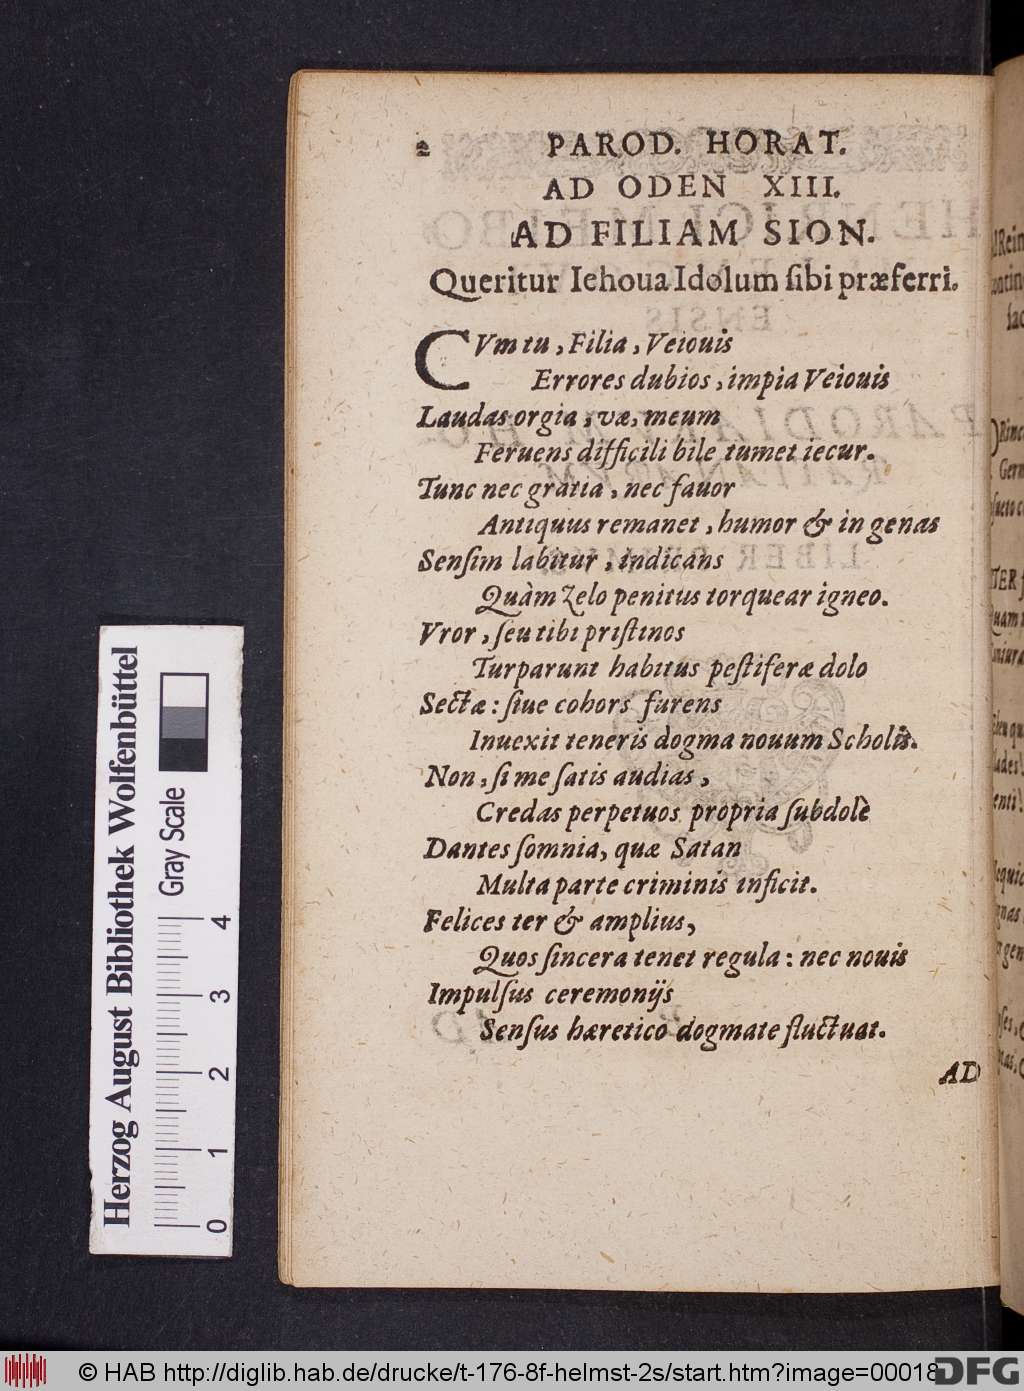 2 PAROD. HORAT.
AD ODEN XIII.
AD FILIAM SION.
Queritur Iehoua Idolum ſibi præferri.
CVm tu, Filia, Veiouis
Errores dubios, impia Veiouis
Laudas orgia, væ, meum
Feruens difficili bile tumet iecur.
Tunc nec gratia, nec fauor
Antiquus remanet, humor & in genas
Senſim labitur, indicans
Quàm Zelo penitus torquear igneo.
Vror, ſeu tibi priſtinos
Turparunt habitus peſtiferæ dolo
Sectæ: ſiue cohors furens
Inuexit teneris dogma nouum Scholis.
Non, ſi me ſatis audias,
Credas perpetuos propria ſubdolè
Dantes ſomnia, quæ Satan
Multa parte criminis inficit.
Felices ter & amplius,
Quos ſincera tenet regula: nec nouis
Impulſus ceremonijs
Senſus hæretico dogmate fluctuat.
AD
Herzog August Bibliothek Wolfenbüttel
Gray Scale
0 1 2 3 4
© HAB http://diglib.hab.de/drucke/t-176-8f-helmst-2s/start.htm?image=00018
DFG